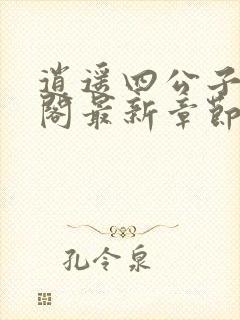 逍遥四公子
阁最新章节
孔令泉